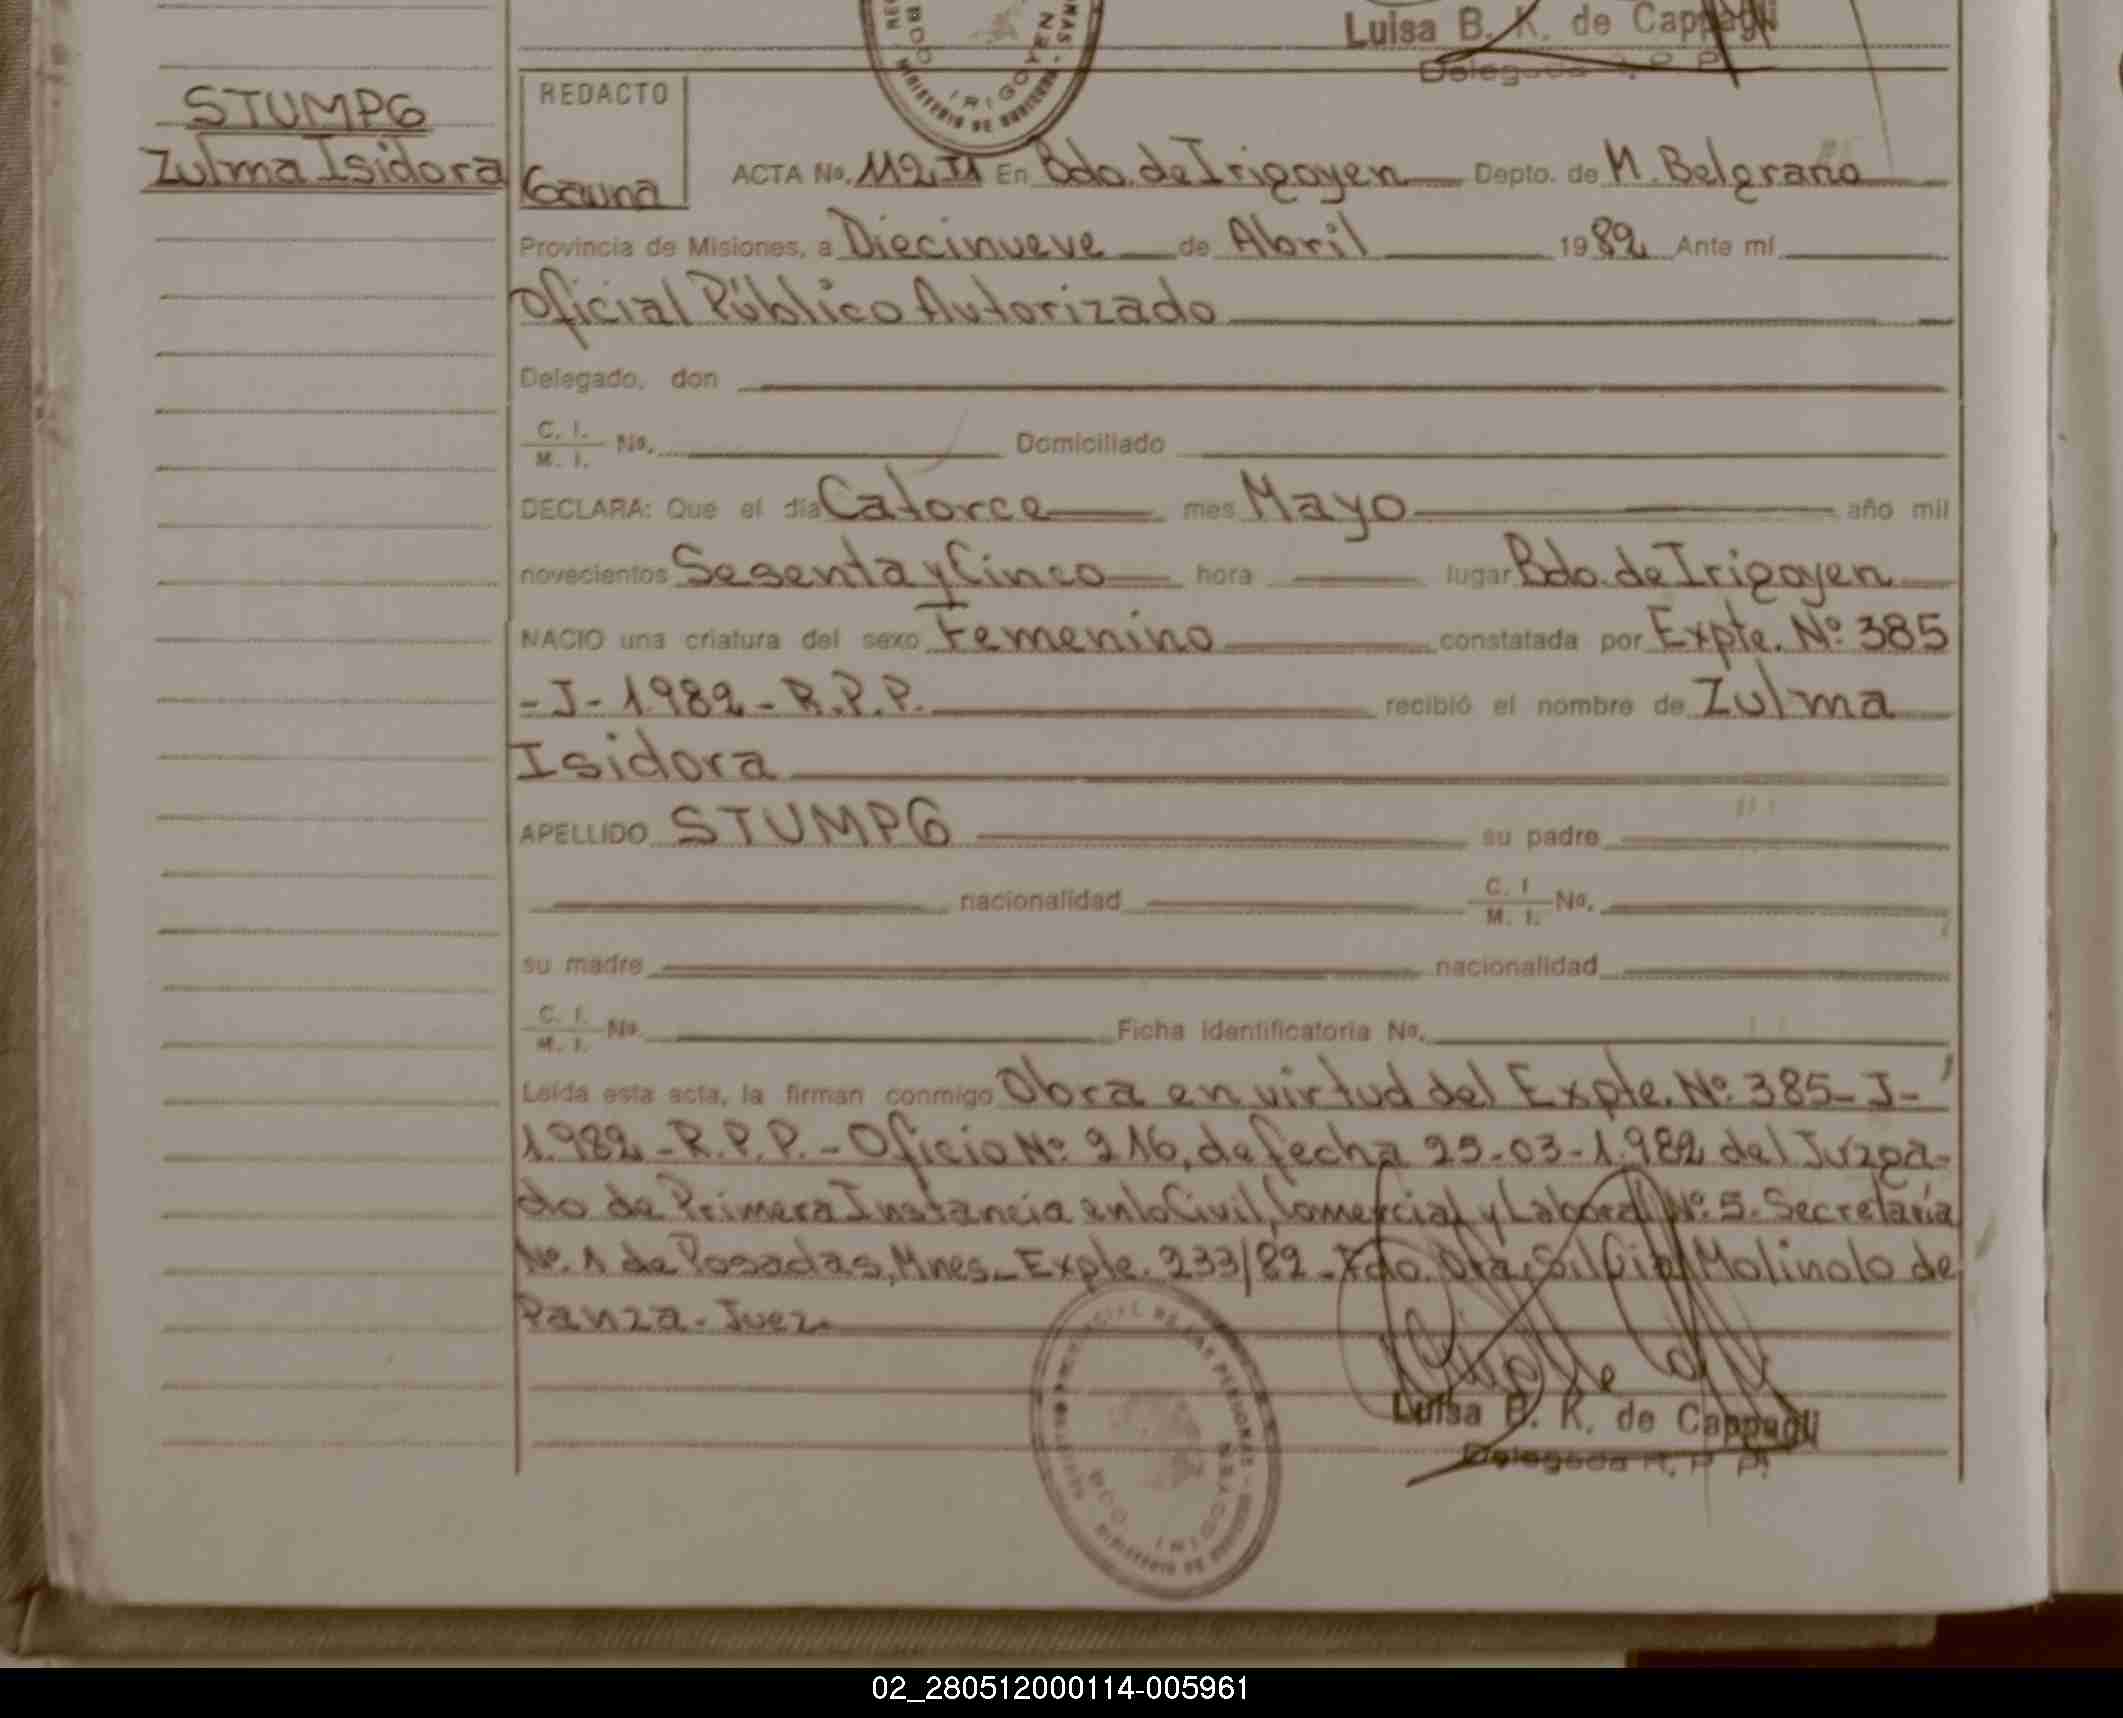 Luisa B. K. de Cappagli
Delegada R. P. P.
STUMPG
Zulma Isidora
REDACTO
Gauna
ACTA No. 112 II En Bdo. de Irigoyen Depto. de M. Belgrano
Provincia de Misiones, a Diecinueve de Abril 1982 Ante mí
Oficial Público Autorizado
Delegado, don
C. I. M. I. No. Domiciliado
DECLARA: Que el día Catorce mes Mayo año mil
novecientos Sesenta y Cinco hora lugar Bdo. de Irigoyen
NACIO una criatura del sexo Femenino constatada por Expte. Nº 385
- J - 1.982 - R.P.P. recibió el nombre de Zulma
Isidora
APELLIDO STUMPG su padre
nacionalidad C. I M. I. No.
su madre nacionalidad
C. I. M. I. No. Ficha Identificatoria No.
Leída esta acta, la firman conmigo Obra en virtud del Expte. Nº 385 - J -
1.982 - R.P.P. - Oficio Nº 216, de fecha 25-03-1.982 del Juzga-
do de Primera Instancia en lo Civil, Comercial y Laboral Nº 5. Secretaría
Nº. 1 de Posadas, Mnes. - Expte. 233/82 - Fdo. Dra. Silvia Molinolo de
Panza - Juez.
Luisa B. K. de Cappagli
Delegada R. P. P.
02_280512000114-005961